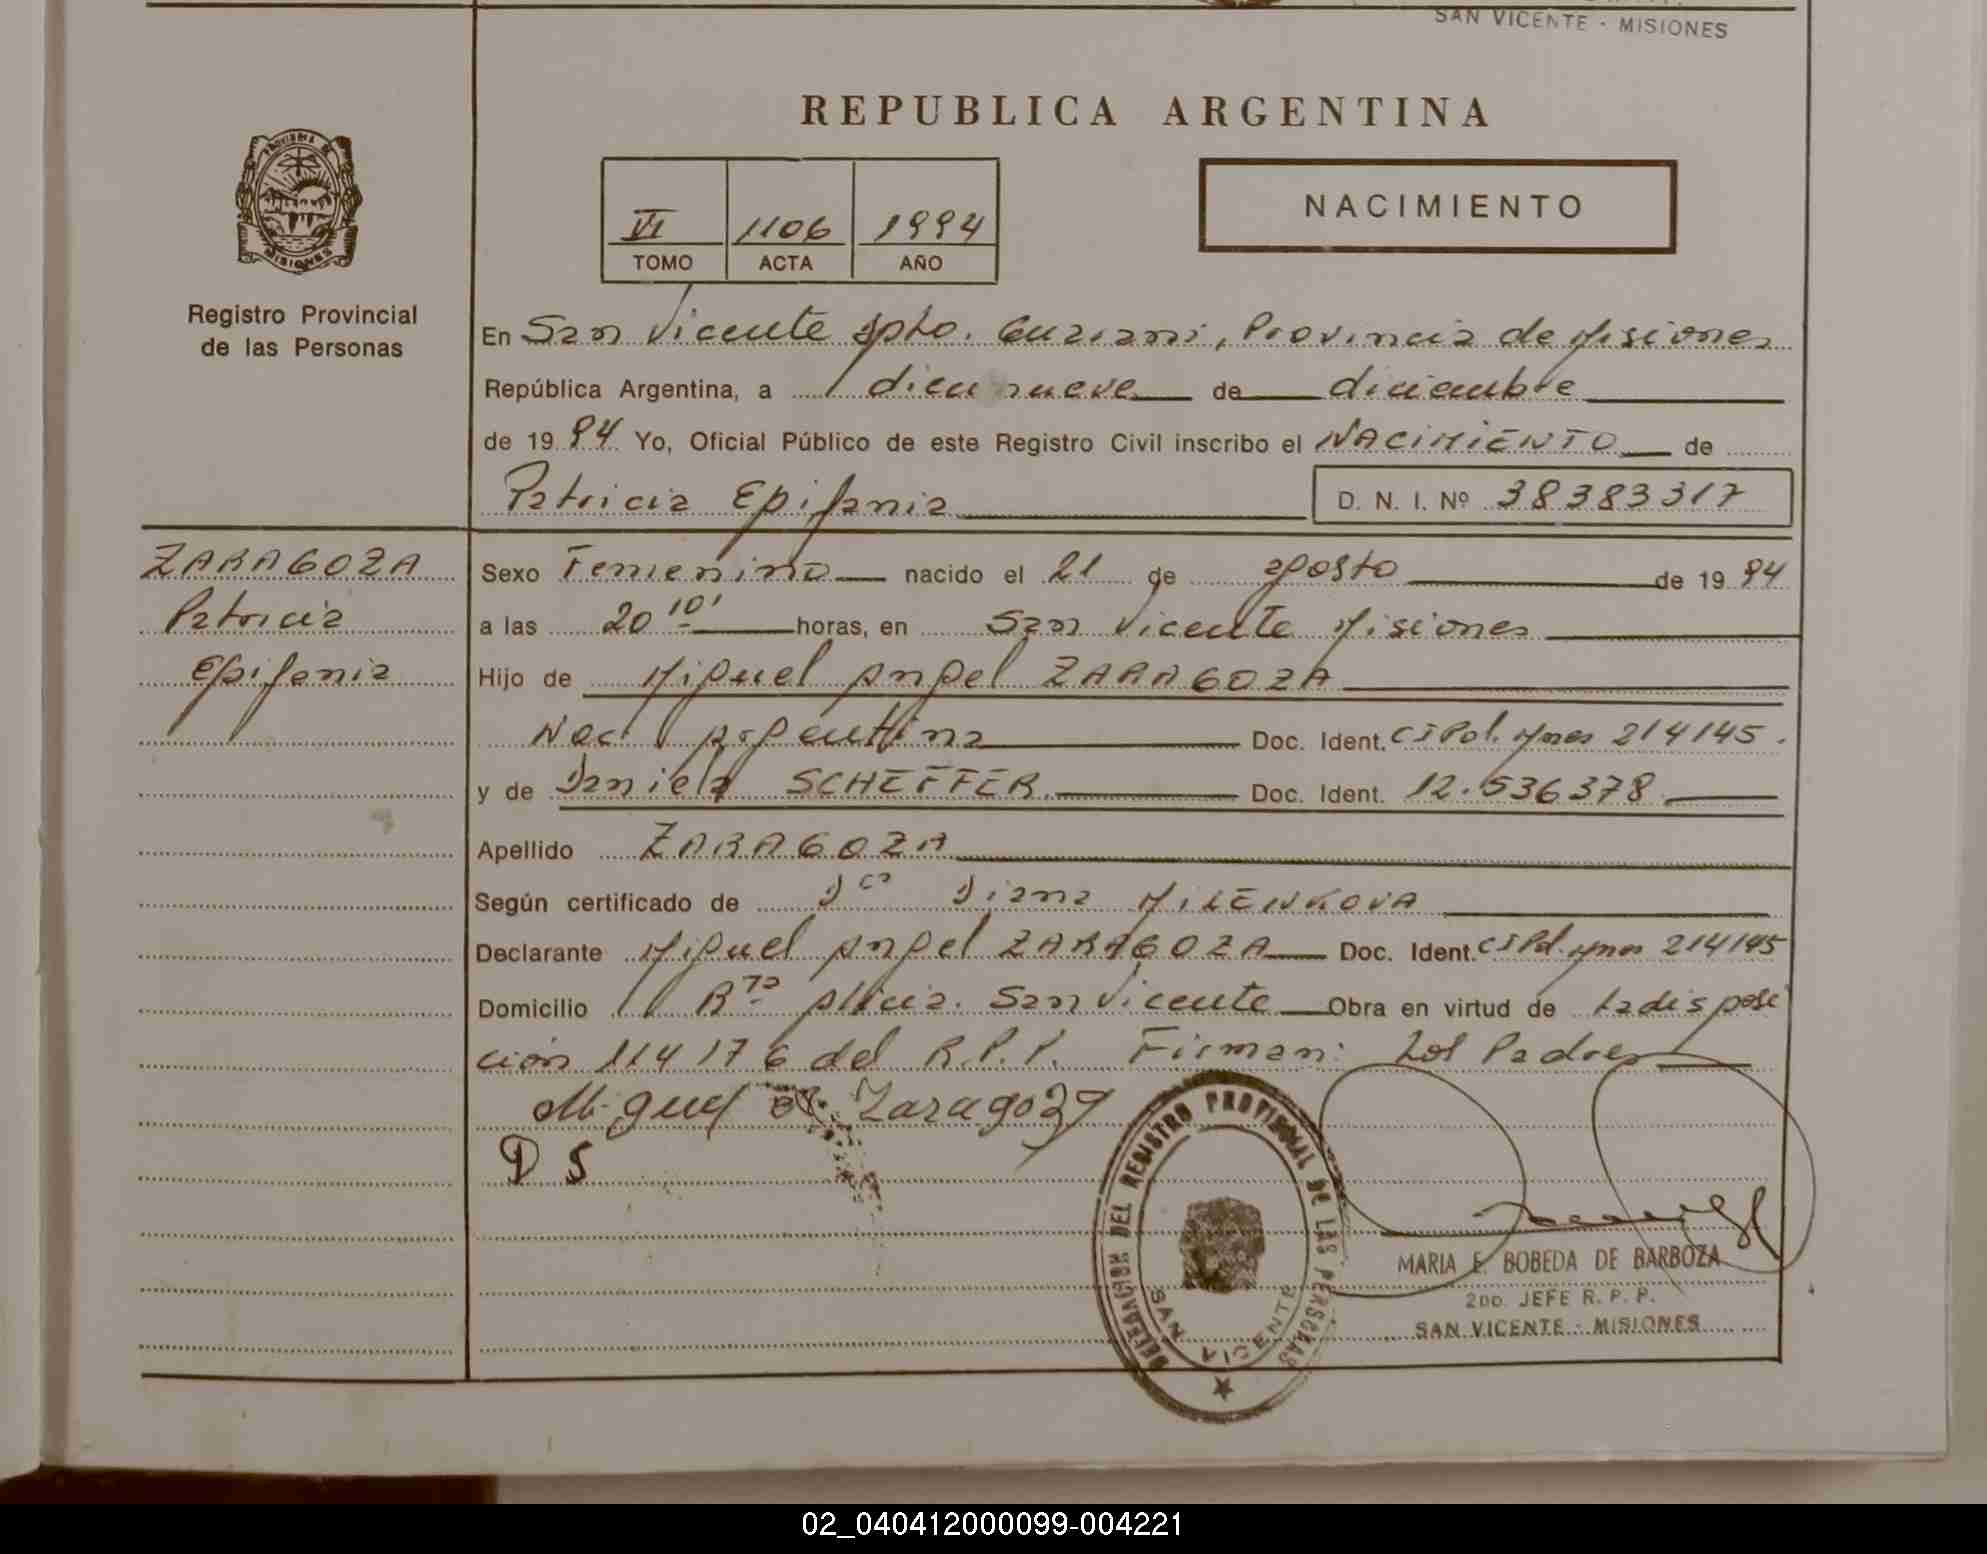 SAN VICENTE - MISIONES
REPUBLICA ARGENTINA
PROVINCIA DE
MISIONES
Registro Provincial
de las Personas
VI 1106 1994
TOMO ACTA AÑO
NACIMIENTO
En San Vicente Dpto. Guarani, Provincia de Misiones
República Argentina, a diecinueve de diciembre
de 1994 Yo, Oficial Público de este Registro Civil inscribo el NACIMIENTO de
Patricia Epifania D. N. I. Nº 38383317
ZARAGOZA
Patricia
Epifania
Sexo Femenino nacido el 21 de agosto de 1994
a las 20 10' horas, en San Vicente Misiones
Hijo de Miguel Angel ZARAGOZA
Nac. argentina Doc. Ident. CI Pol. Mnes 214145.
y de Daniela SCHEFFER. Doc. Ident. 12.536378
Apellido ZARAGOZA
Según certificado de Dra Diana MILENKOVA
Declarante Miguel Angel ZARAGOZA Doc. Ident. CI Pol. Mnes 214145
Domicilio Rta San Vicente Obra en virtud de la disposi
ción 114176 del R.P.P. Firman: Los Padres
Miguel Zaragoza
D S
DELEGACION DEL REGISTRO PROVINCIAL DE LAS PERSONAS
SAN VICENTE
MARIA E. BOBEDA DE BARBOZA
2DO. JEFE R. P. P.
SAN VICENTE - MISIONES
02_040412000099-004221